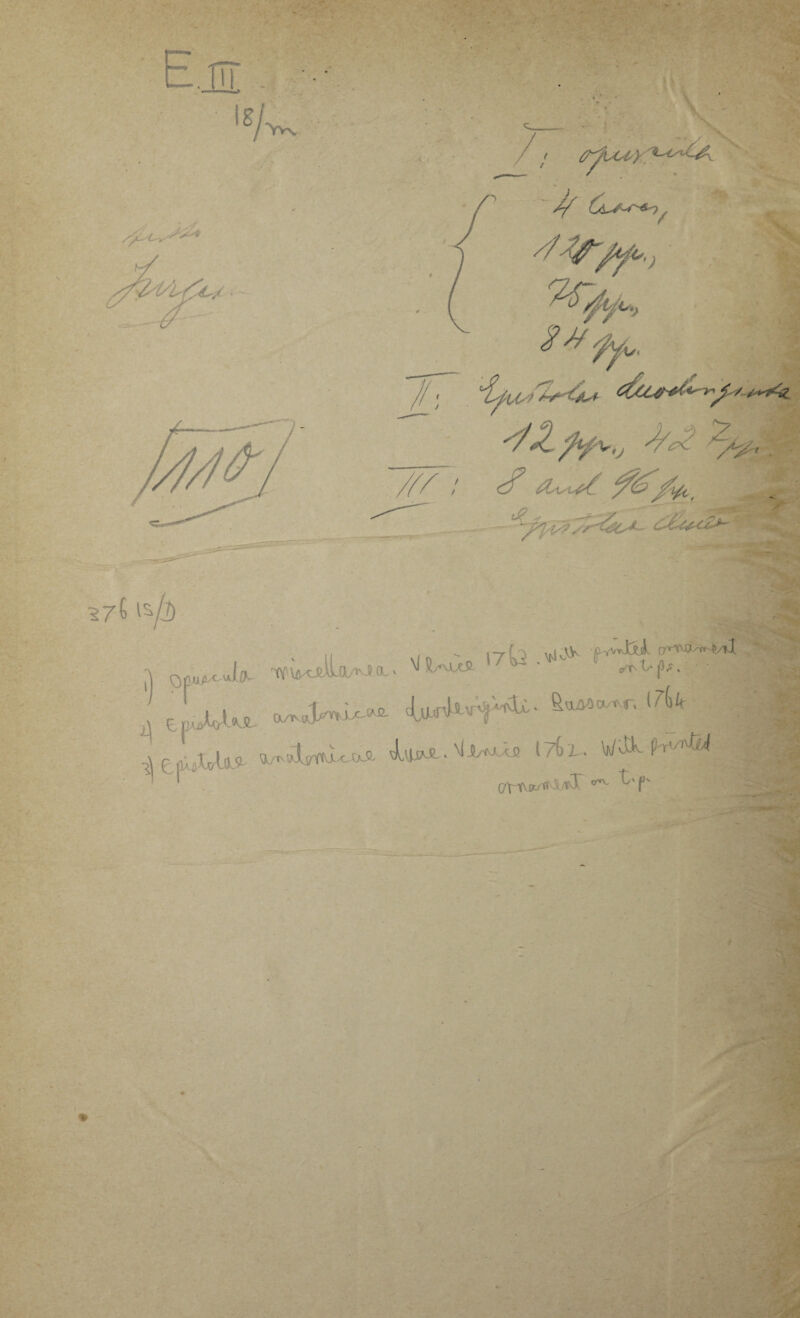 E.III.
18/m
I: opuscula
4 leaves,
120 pp.,
75 pp.,
84 pp.
II: Epistolae duodeviginti
12 pp., 42 pp.
[110]
III: 8 and 96 pp.
Epistolae duae
376 15/D
1) Opuscula miscellanea. Venice 1763. With printed ornament
on t.ps.
2) Epistolae anatomicae duodeviginti. Bassano. 1764
3) Epistolae anatomicae duae. Venice 1762. With printed
ornament on t.p.